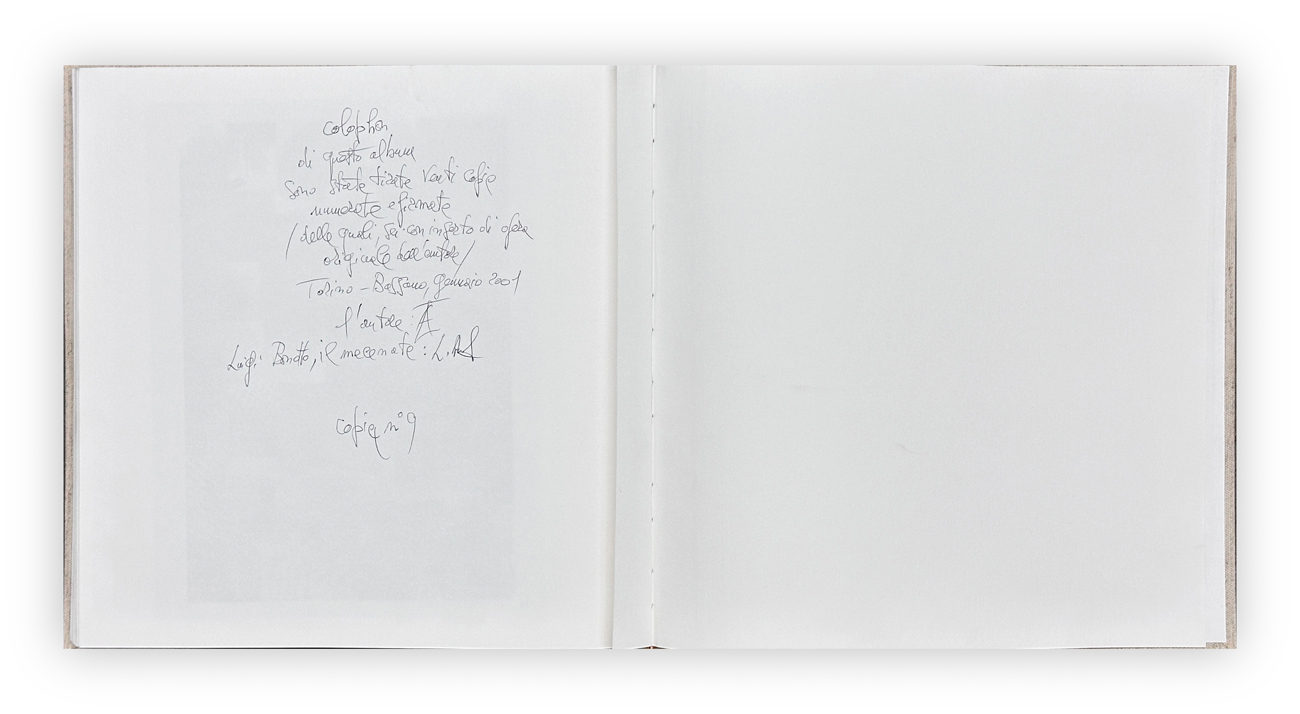 colophon
di questo album
sono state tirate venti copie
numerate e firmate
/delle quali, sei con inserto di opera
originale dell'autore/
Torino - Bassano, gennaio 2001
l'autore:
Luigi Bonotto, il mecenate:
copia n° 9